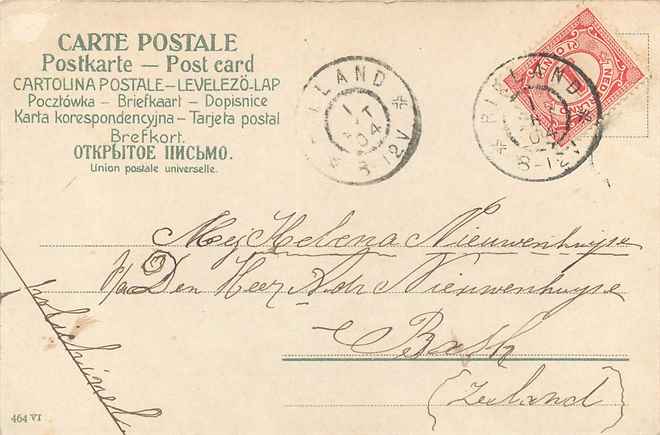 CARTE POSTALE
Postkarte — Post card
CARTOLINA POSTALE — LEVELEZŐ-LAP
Pocztówka — Briefkaart — Dopisnice
Karta korespondencyjna — Tarjeta postal
Brefkort.
ОТКРЫТОЕ ПИСЬМО.
Union postale universelle.
RILLAND
1
04
8-12V
RILLAND
04
8-12V
NED
Mej Helena Nieuwenhuyse
p/a Den Heer Adr Nieuwenhuyse
Bath
(Zeeland)
464 VI